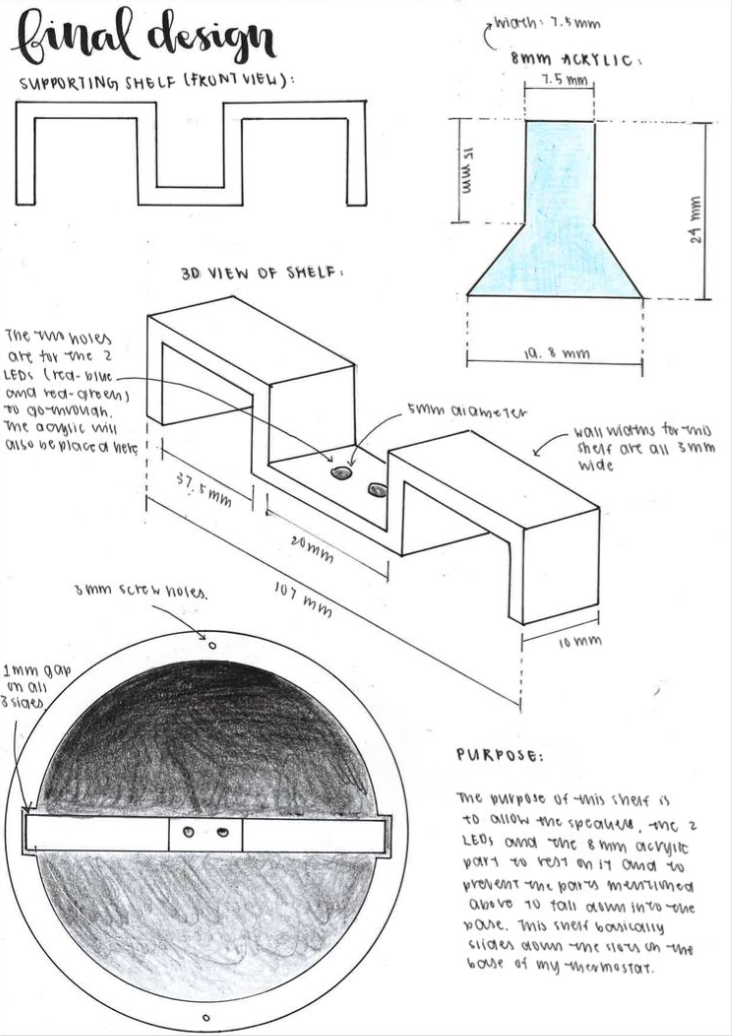 final design
SUPPORTING SHELF (FRONT VIEW):
width: 7.5mm
8mm ACRYLIC:
7.5 mm
15 mm
24 mm
19.8 mm
3D VIEW OF SHELF:
The two holes
are for the 2
LEDs (red-blue
and red-green)
to go through.
The acrylic will
also be placed here
5mm diameter
wall widths for this
shelf are all 3mm
wide
37.5mm
20mm
107 mm
10mm
3mm screw holes.
1mm gap
on all
3 sides.
PURPOSE:
The purpose of this shelf is
to allow the speaker, the 2
LEDs and the 8mm acrylic
part to rest on it and to
prevent the parts mentioned
above to fall down into the
base. This shelf basically
slides down the slots on the
base of my thermostat.